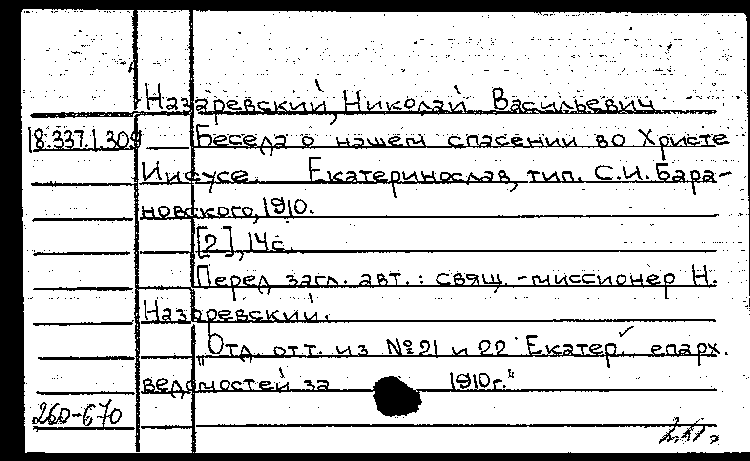 Назаревский, Николай Васильевич
18.337.1.309 Беседа о нашем спасении во Христе
Иисусе. Екатеринослав, тип. С.И. Бара-
новского, 1910.
[2], 14с.
Перед загл. авт.: свящ.-миссионер Н.
Назаревский.
„Отд. отт. из №21 и 22 Екатер. епарх.
ведомостей за 1910г."
260-670